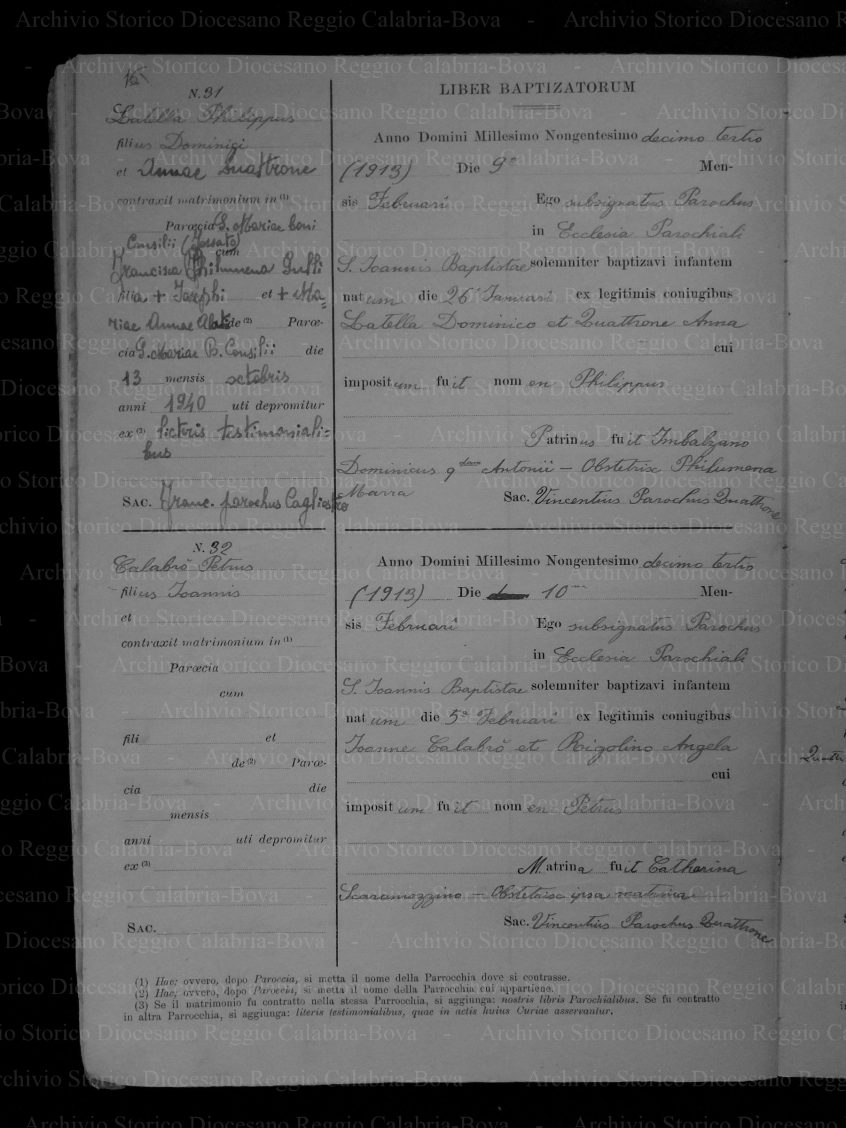 Archivio Storico Diocesano Reggio Calabria-Bova
16
N. 31
Latella Philippus
filius Dominici
et Annae Quattrone
contraxit matrimonium in (1)
Parœcia S. Mariae boni
Consilii (
cum
Francisca Philumena
filia + Iosephi et + Ma-
riae Annae de (2) Parœ-
cia S. Mariae B. Consilii die
13 mensis octobris
anni 1940 uti depromitur
ex (3) licteris testimoniali-
bus
SAC. Franc. parochus Cagliostro
LIBER BAPTIZATORUM
Anno Domini Millesimo Nongentesimo decimo tertio
(1913) Die 9ª Men-
sis Februari Ego subsignatus Parochus
in Ecclesia Parochiali
S. Ioannis Baptistae solemniter baptizavi infantem
natum die 26ª Ianuari ex legitimis coniugibus
Latella Dominico et Quattrone Anna
cui
impositum fuit nomen Philippus
Patrinus fuit Imbalzano
Dominicus qdam Antonii – Obstetrix Philumena
Marra Sac. Vincentius Parochus Quattrone
N. 32
Calabrò Petrus
filius Ioannis
et
contraxit matrimonium in (1)
Parœcia
cum
fili et
de (2) Parœ-
cia die
mensis
anni uti depromitur
ex (3)
SAC.
Anno Domini Millesimo Nongentesimo decimo tertio
(1913) Die 10 Men-
sis Februari Ego subsignatus Parochus
in Ecclesia Parochiali
S. Ioannis Baptistae solemniter baptizavi infantem
natum die 5ª Februari ex legitimis coniugibus
Ioanne Calabrò et Rigolino Angela
cui
impositum fuit nomen Petrus
Matrina fuit Catharina
Scaramozzino – Obstetrix ipsa matrina
Sac. Vincentius Parochus Quattrone
(1) Hac; ovvero, dopo Paroecia, si metta il nome della Parrocchia dove si contrasse.
(2) Hac; ovvero, dopo Paroecia, si metta il nome della Parrocchia cui appartiene.
(3) Se il matrimonio fu contratto nella stessa Parrocchia, si aggiunga: nostris libris Parochialibus. Se fu contratto
in altra Parrocchia, si aggiunga: literis testimonialibus, quae in actis huius Curiae asservantur.